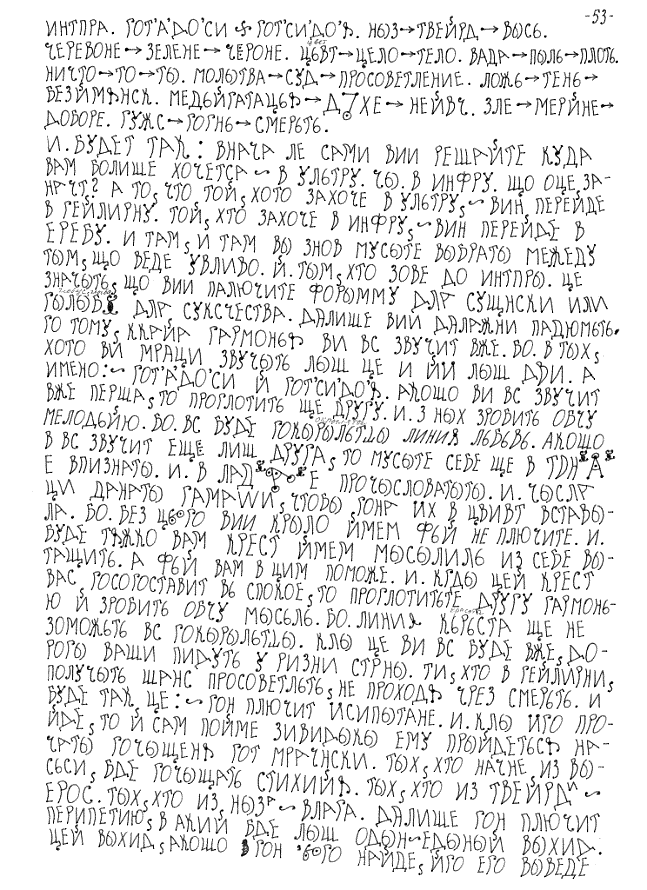 -53-
ИНТПРА. ГОТ'А'ДО'СИ ГОТ'СИ'ДО'Я. НЫЗ→ТВЕЙРД→ВЫСЬ.
ЧЕРЕВОНЕ→ЗЕЛЕНЕ→ЧЕРОНЕ. ЦЬВТ→ЦЕЛО→ТЕЛО. ВАДА→ПЫЛЬ→ПЛОТЬ.
НИЧТО→ТО→ТЫ. МОЛЫТВА→СУД→ПРОСОВЕТЛЕНИЕ. ЛОЖЬ→ТЕНЬ→
БЕЗІМЯНСК. →НЕЙВЧ. ЗЛЕ→МЕРІЙНЕ→
ДОБОРЕ. ГУЖС→ГОГНЬ→СМЕРЬТЬ.
И. БУДЕТ ТАК: ВНАЧА ЛЕ САМИ ВИИ РЕШАЙТЕ КУДА
ВАМ БОЛИЩЕ ХОЧЕТСА ~ В УЛЬТРУ. ЧЫ. В ИНФРУ. ЩО ОЦЕ ЗА-
НАЧТ? А ТО, ЧТО ТОЙ, ХОТО ЗАХОЧЕ В УЛЬТРУ, ~ ВИН ПЕРЕЙДЕ
В ГЕЙЛИРНУ. ТОЙ, ХТО ЗАХОЧЕ В ИНФРУ, ~ ВИН ПЕРЕЙДЕ В
ЕРЕБУ. И ТАМ, И ТАМ ВЫ ЗНОВ МУСЫТЕ ВЫБРАТЫ МЕЖЕДУ
ТЫМ, ЩО ВЕДЕ УВЛИВО. Й. ТЫМ, ХТО ЗОВЕ ДО ИНТПРЫ. ЦЕ
ЗНАЧЫТЬ, ЩО ВИИ ПАЛЮЧИТЕ ФОРЫММУ ДЛЯ СУЩНСКИ ИЛИ
ДЛЯ СУКСЧЕСТВА. ДАЛИЩЕ ВИИ ДАЛАЖНИ ПАДЮМЬТЬ.
ГО ТОМУ, ККАЙА ГАРМОНЬЯ ВИ ВС ЗВУЧИТ ВЖЕ. ВО. В ТЫХ,
ХОТО ВИ МРАЦИ ЗВУЧЫТЬ ЛЫШ ЦЕ И ИЙ ЛЫШ ДВИ. А
ИМЕНО: ~ ГОТ'А'ДО'СИ Й ГОТ'СИ'ДО'Я. АКОШО ВИ ВС ЗВУЧИТ
ВЖЕ ПЕРША, ТО ПРОГЛОТИТЬ ЩЕ ДРУГУ. И. З НЫХ ЗРОВИТЬ ОВЧУ
МЕЛОДЬИЮ. БО. ВС БУДЕ ЛИНИЯ АКОШО
В ВС ЗВУЧИТ ЕЩЕ ЛИШ ДРУГА, ТО МУСЫТЕ СЕБЕ ЩЕ В
Е ВПИЗНАТЫ. И. В ПРОЧЫСЛОВАТЫТЫ. И. ЧЫСЛА
ЦИ ДАНАТЫ ЧТОБЫ ГОНА ИХ В ЦВИВТ ВСТАВЫ-
ЛА. БО. БЕЗ ЦЬОГО ВИИ КРЫЛО ИМЕМ ФЫЙ НЕ ПЛЮЧИТЕ. И.
БУДЕ ТЯЖКО ВАМ КРЕСТ ИМЕМ МЫСЫЛИЛЬ ИЗ СЕБЕ ВЫ-
ТАЩИТЬ. А ФЫЙ ВАМ В ЦИМ ПОМОЖЕ. И. КГДЫ ЦЕЙ КРЕСТ
ВАС ГОСОГОСТАВИТ ВЬ СПОКОЕ, ТО ПРОГЛОТИТЬТЕ ДРУГУ ГАРМОНЬ-
Ю Й ЗРОВИТЬ ОВЧУ МЫСЬЛЬ. БО. ЛИНИЯ КЬРЬСТА ЩЕ НЕ
ЗОМОЖЬТЬ ВС КЛЫ ЦЕ ВИ ВС БУДЕ ВЖЕ, ДО-
РОГЫ ВАШИ ПИДУТЬ У РИЗНИ СТРНЫ. ТИ, ХТО В ГЕЙЛИРНИ,
ПОЛУЧЫТЬ ШАНС ПРОСОВЕТЛЬТЬ, НЕ ПРОХОДЯ ЧРЕЗ СМЕРЬТЬ. И
БУДЕ ТАК ЦЕ: ~ ГОН ПЛЮЧИТ ИСИПЫТАНЕ. И. КЛЫ ИГО ПРО-
ЙДЕ, ТО Й САМ ПОЙМЕ ЗИВИДЫКЫ ЕМУ ПРЫЙДЕТЬСЯ НА-
ЧАТЫ ГОЧЫЩЕНЯ ГОТ МРАЧНСКИ. ТЫХ, ХТО НАЧНЕ, ИЗ ВЫ-
СЬСИ, БДЕ ГОЧЫЩАТЬ СТИХИЙЯ. ТЫХ, ХТО ИЗ ТВЕЙРД ~
ЕРОС. ТЫХ, ХТО ИЗ НЫЗ ~ ВЛАГА. ДАЛИЩЕ ГОН ПЛЮЧИТ
ПЕРИПЕТИЮ, В АКИЙ БДЕ ЛЫШ ОДЫН~ЕДЫНЫЙ ВЫХИД.
ЦЕЙ ВЫХИД, АКОШО ГОН НАЙДЕ, ЙГО ЕГО ВЫВЕДЕ